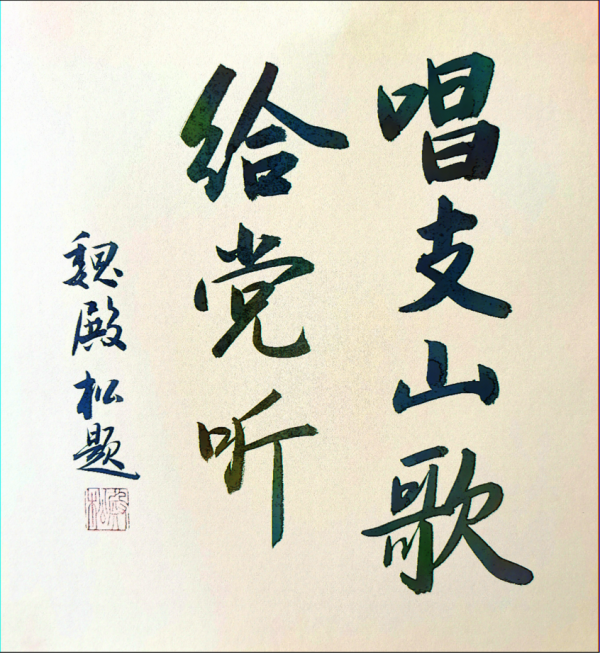 唱支山歌
给党听
魏殿松题